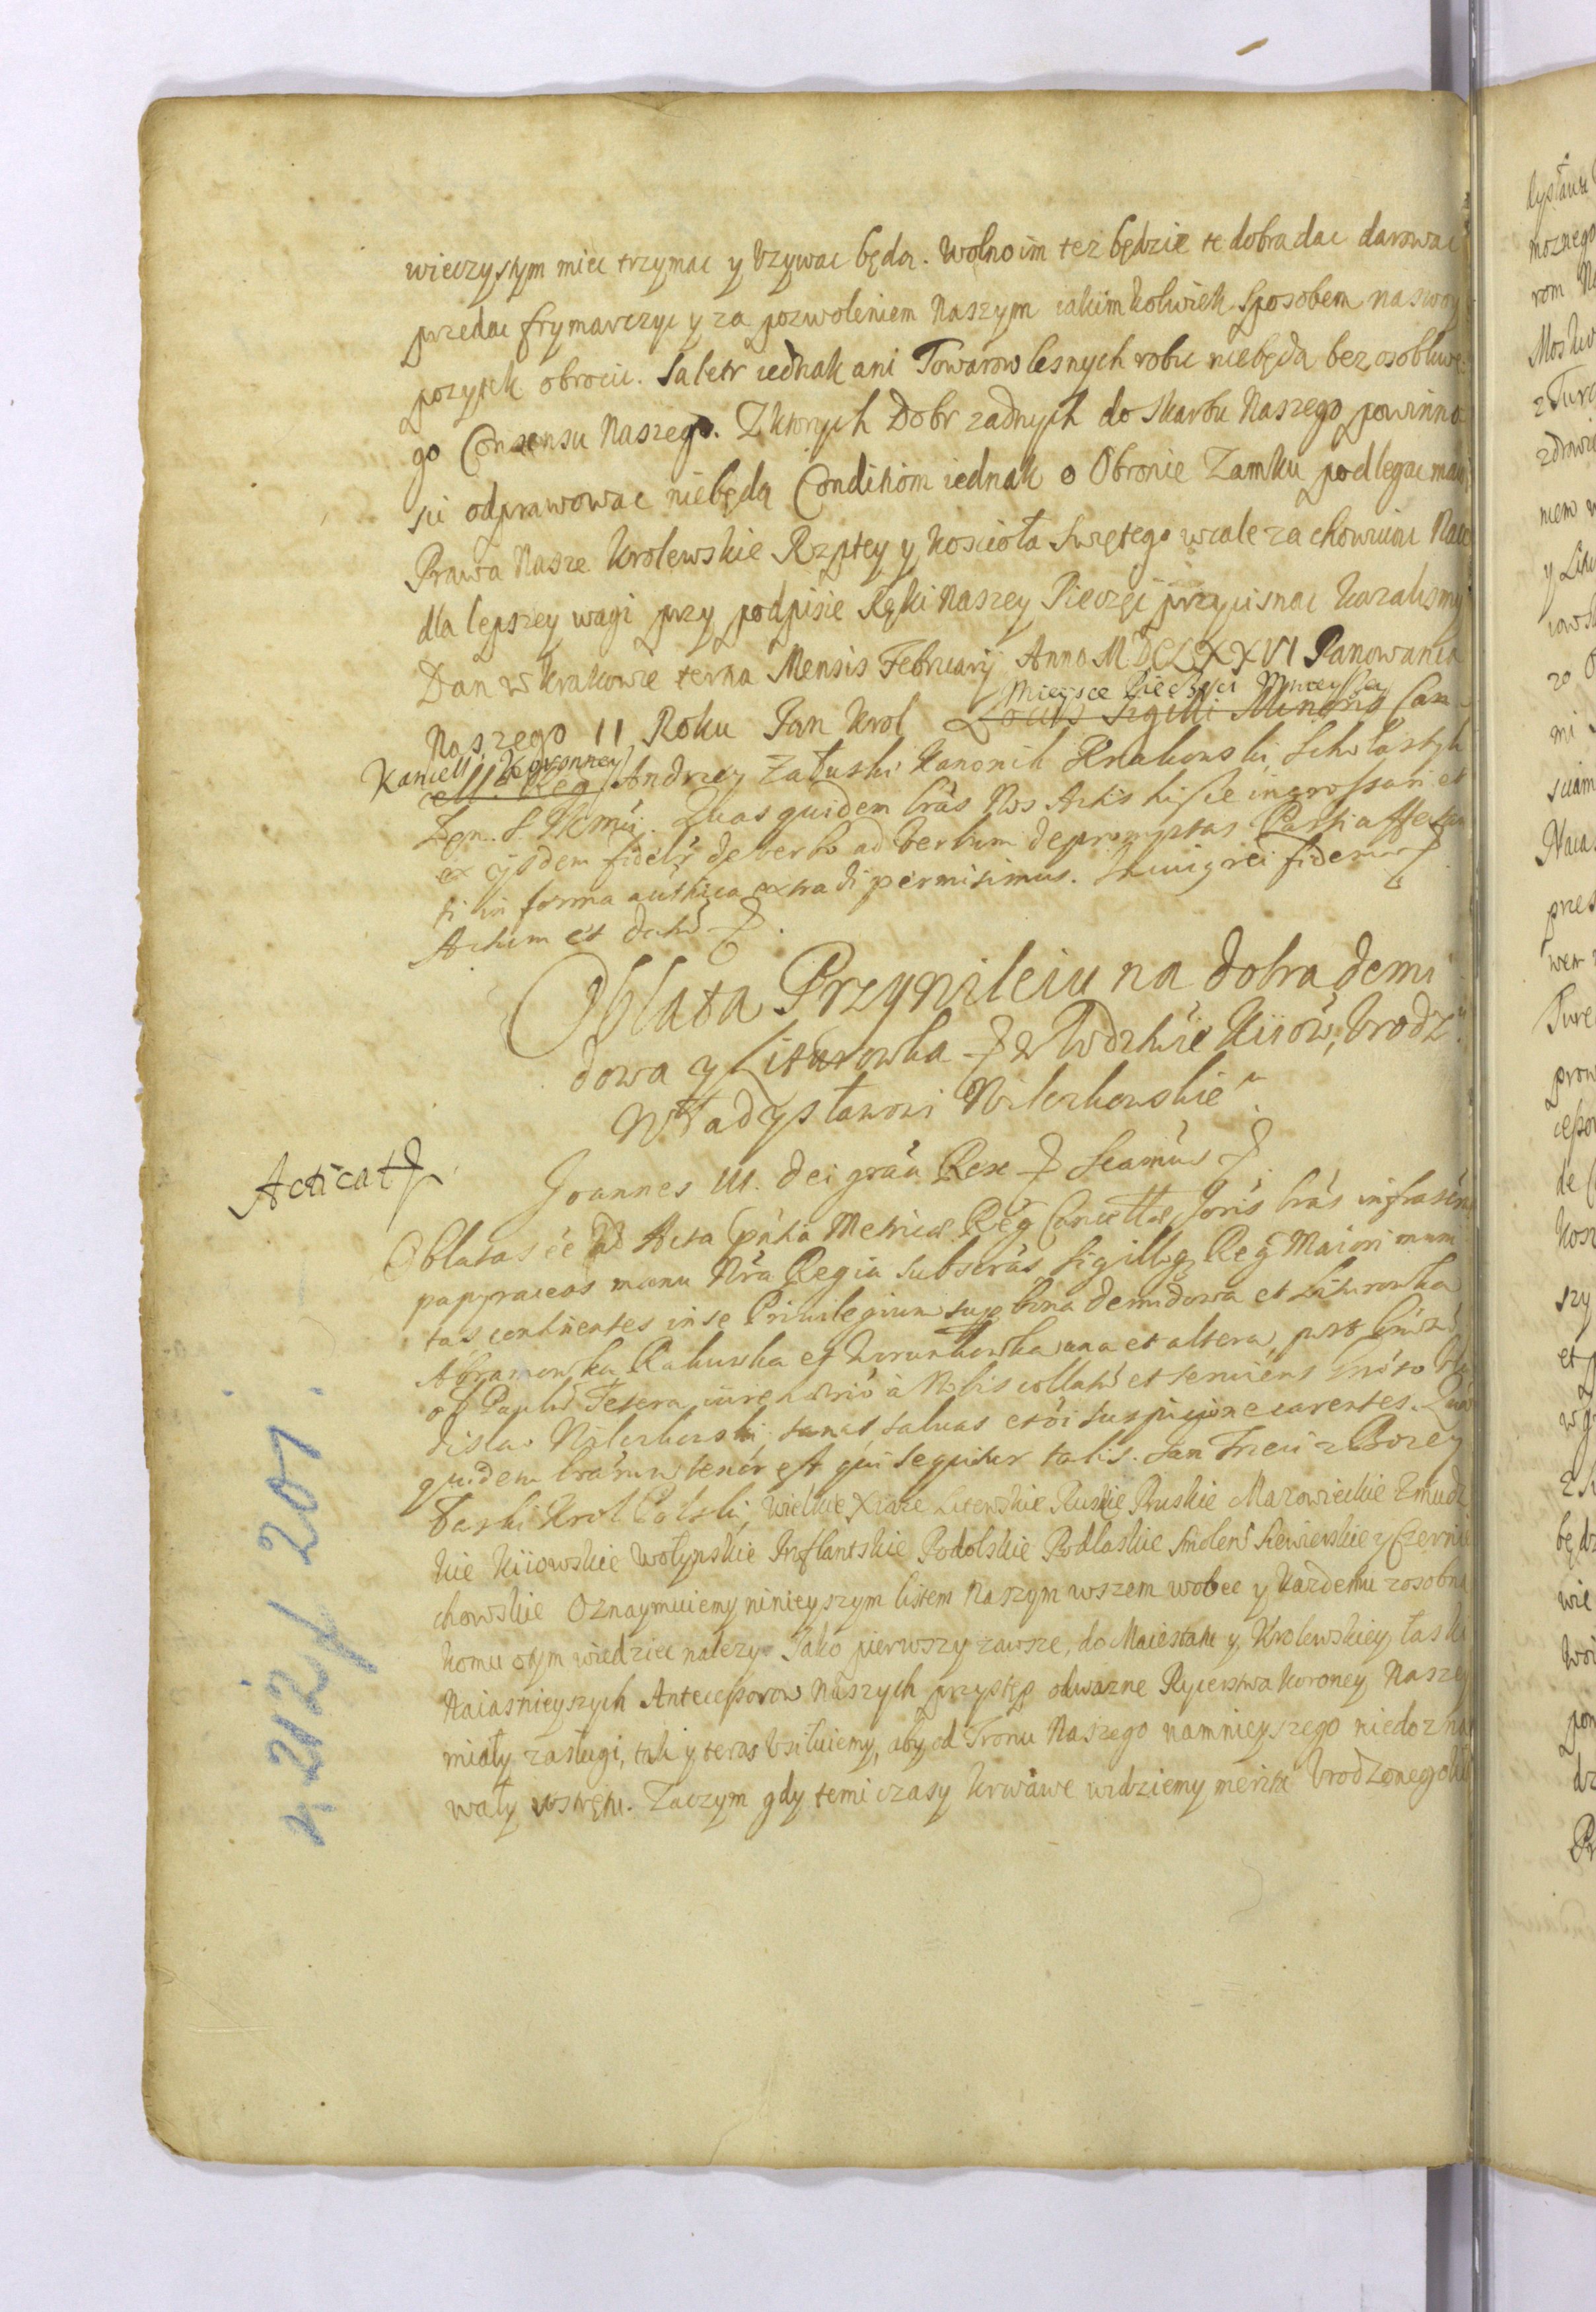 wieczystym miec trzymac y uzywac będą. Wolno im tez będzie te dobra dac darowac
przedac frymarczyc y za pozwoleniem Naszym iakimkolwiek sposobem na swoy
pozytek obrocic. Saletr iednak ani Towarow lesnych robic niebędą bez osobliwe
go Consensu Naszego. Z ktorych Dobr zadnych do skarbu Naszego powinno
sci odprawowac niebędą Conditiom iednak o Obronie Zamku podlegac maią
Prawa Nasze Krolewskie Rzptey y koscioła Swiętego wcale zachowuiąc Na co
dla lepszey wagi przy podpisie Ręki Naszey Pieczęć przycisnac kazalismy
Dan w Krakowie terna Mensis Februarij Anno MDCLXXVI Panowania
Mieysce Pieczęci Mnieyszey
Naszego II Roku Jan Krol Locus Sigilli Minoris Can
Kancell: Koronney
cell: Reg Andrzey Załuski Kanonik Krakowski, Scholastyk
Quas quidem lrās Nos Actis hisce ingrossari et
ex ijsdem fidelr de verbo ad verbum depromptas Parti affectan
ti in forma authica extradi permisimus. In cuius rei fidem
Actum et datū
Oblata Przywileiu na dobra demi
dowa y Liturowka w Wdztwie Kiiow, Urodz
Władysławowi Wilczkowskie
Acticat
Joannes III. Dei grãa Rex Seamus
Oblatas ee ad Acta Metrices Reg Cancellae lrās infrascrip
papyraceas manu Nrã Regia subscrās sigilloq Reg Maiori muni
tas continentes in se Privilegium sup bona demidowa et Liturowka
Abramowka Rakuwka et Worunkowka una et altera, post
ol Paulū Tetera iure à Nobis collatū et serviens Gnoso Vla
dislao Wilczkowski sanas, salvas et oi suspicione carentes. Quar
quidem lrarum tenor est qui sequitur talis. Jan Trzeci z Bozey
łaski Krol Polski, Wielkie Xiąze Litewskie Ruskie Pruskie Mazowieckie Zmudz
kie Kiiowskie Wołynskie Inflantskie Podolskie Podlaskie Smolen Siewierskie y Czernie
chowskie Oznaymuiemy ninieyszym listem Naszym wszem wobec y kazdemu zosobna
komu o tym wiedziec nalezy. Iako pierwszy zawsze, do Maiestatu y Krolewskiey łaski
Naiasnieyszych Antecessorow Naszych przystęp odwazne Rycerstwa koroney Naszey
miały zasługi, tak y teraz usiłuiemy, aby od Tronu Naszego namnieyszego niedozna
wały wstrętu. Zaczym gdy temi czasy krwawe widziemy merita Urodzonego